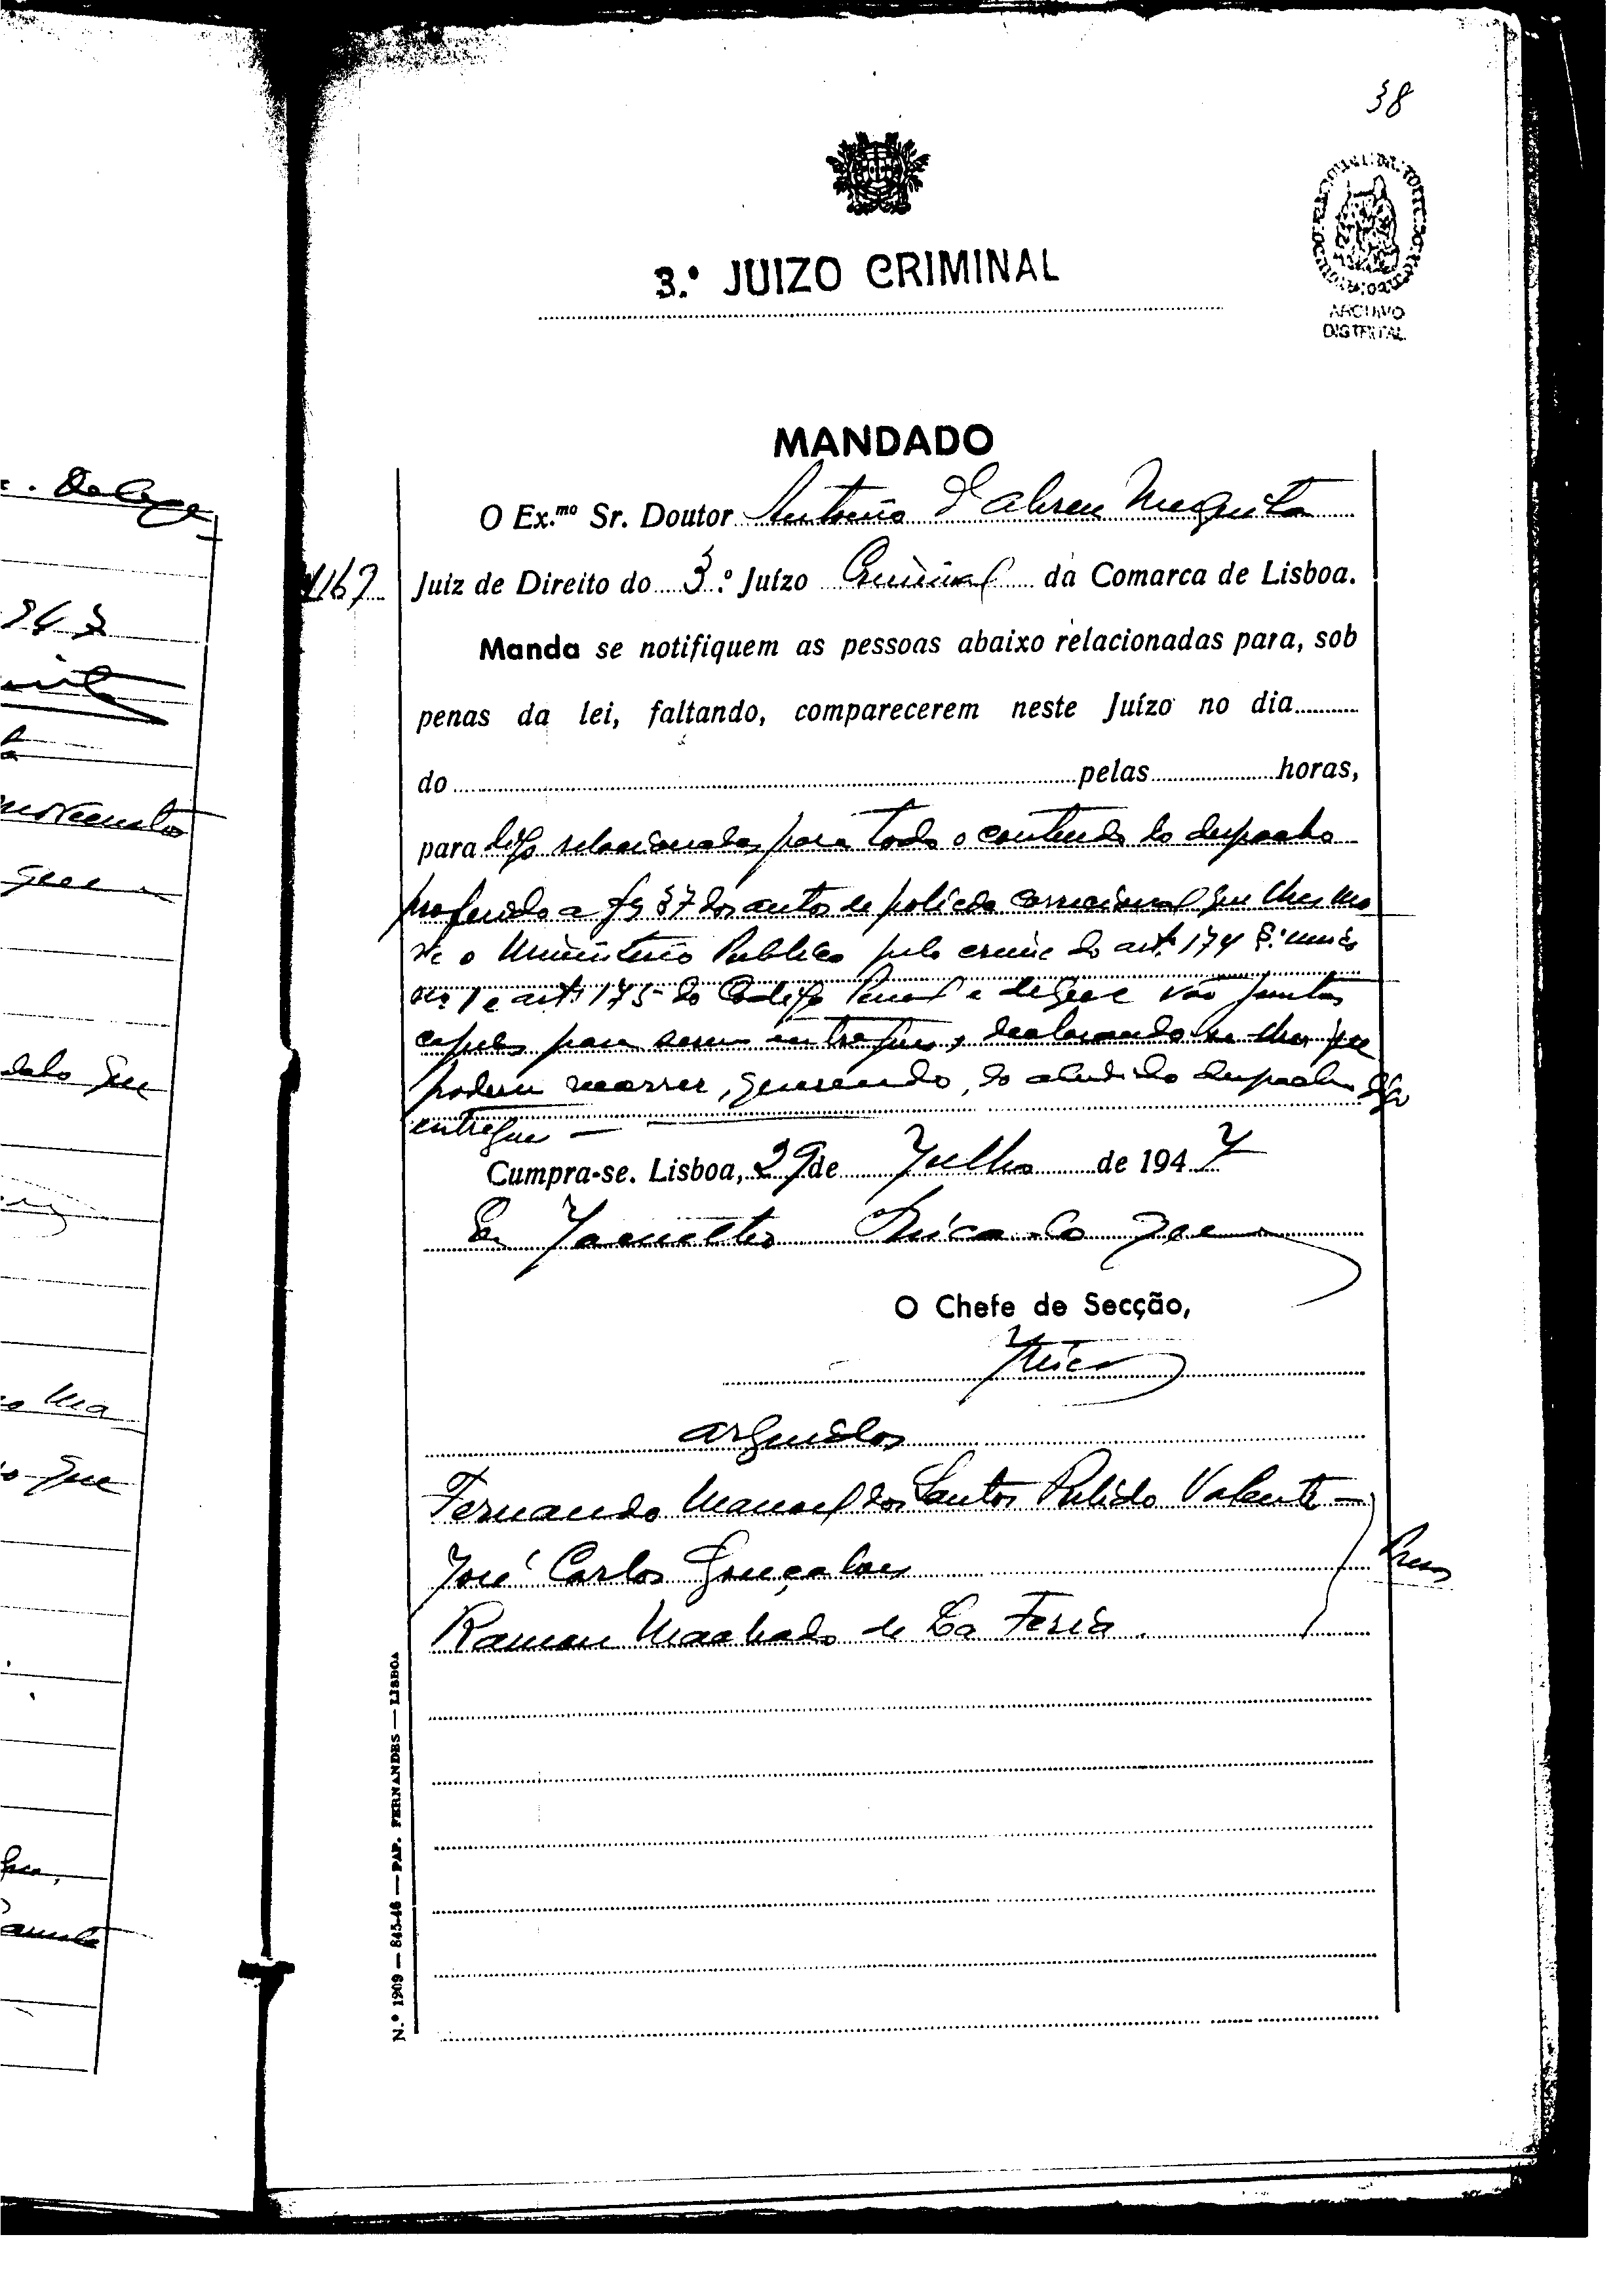 38
3.º JUIZO CRIMINAL
ARCHIVO
DISTRITAL
MANDADO
O Ex.mo Sr. Doutor Antonio d'Abreu Mesquita
Juiz de Direito do 3.º Juízo Criminal da Comarca de Lisboa.
Manda se notifiquem as pessoas abaixo relacionadas para, sob
penas da lei, faltando, comparecerem neste Juízo no dia
do pelas horas,
para digo relacionadas para todo o conteudo do despacho
proferido a fs 37 dos autos de policia correcional que lhes mo
ve o Ministerio Publico pelo crime do art.º 174 §.º unico
nº 1 e artº 175 do Codigo Penal e de que vão juntas
copias para serem entregues, declarando-se-lhes que
podem recorrer, querendo, do aludido despacho digo
entregue —
Cumpra-se. Lisboa, 29 de Julho de 1947
O Chefe de Secção,
arguidos
Fernando Manoel dos Santos Pulido Valente —
José Carlos Gonçalves
Ramon Machado de La Feria.
N.º 1209 — 845-46 — PAP. FERNANDES — LISBOA